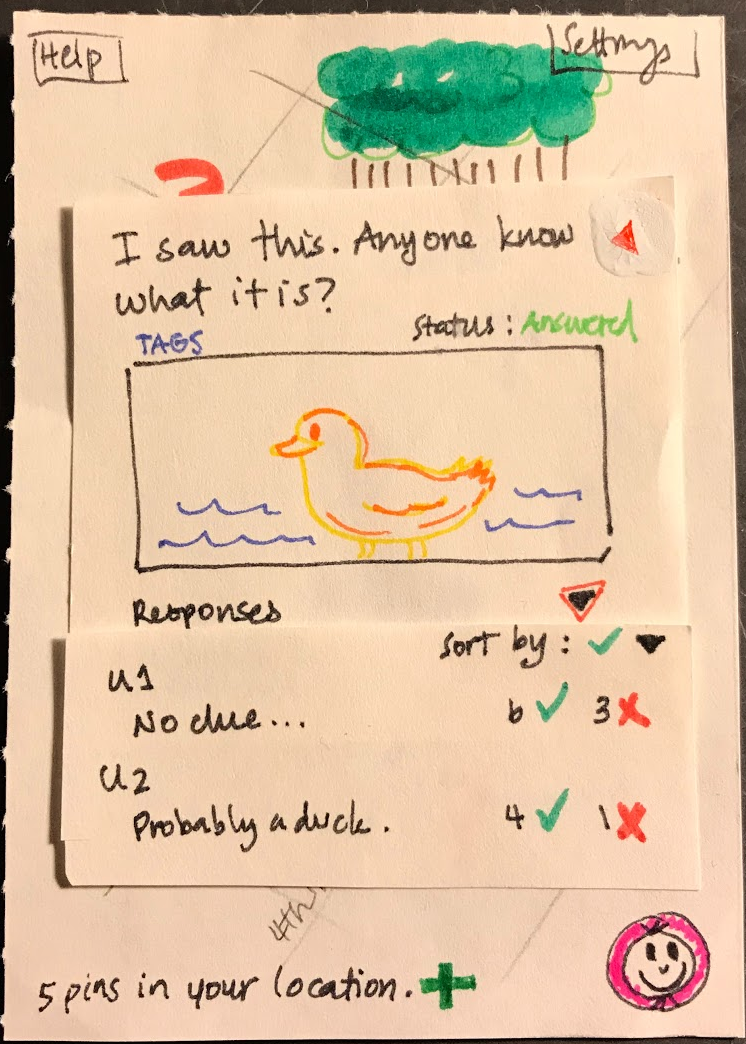 Help
Settings
?
I saw this. Anyone know
what it is?
TAGS
Status : Answered
Responses
Sort by : ✓ ▼
U1
No clue... 6 ✓ 3 ✗
U2
Probably a duck. 4 ✓ 1 ✗
4th
5 pins in your location. +